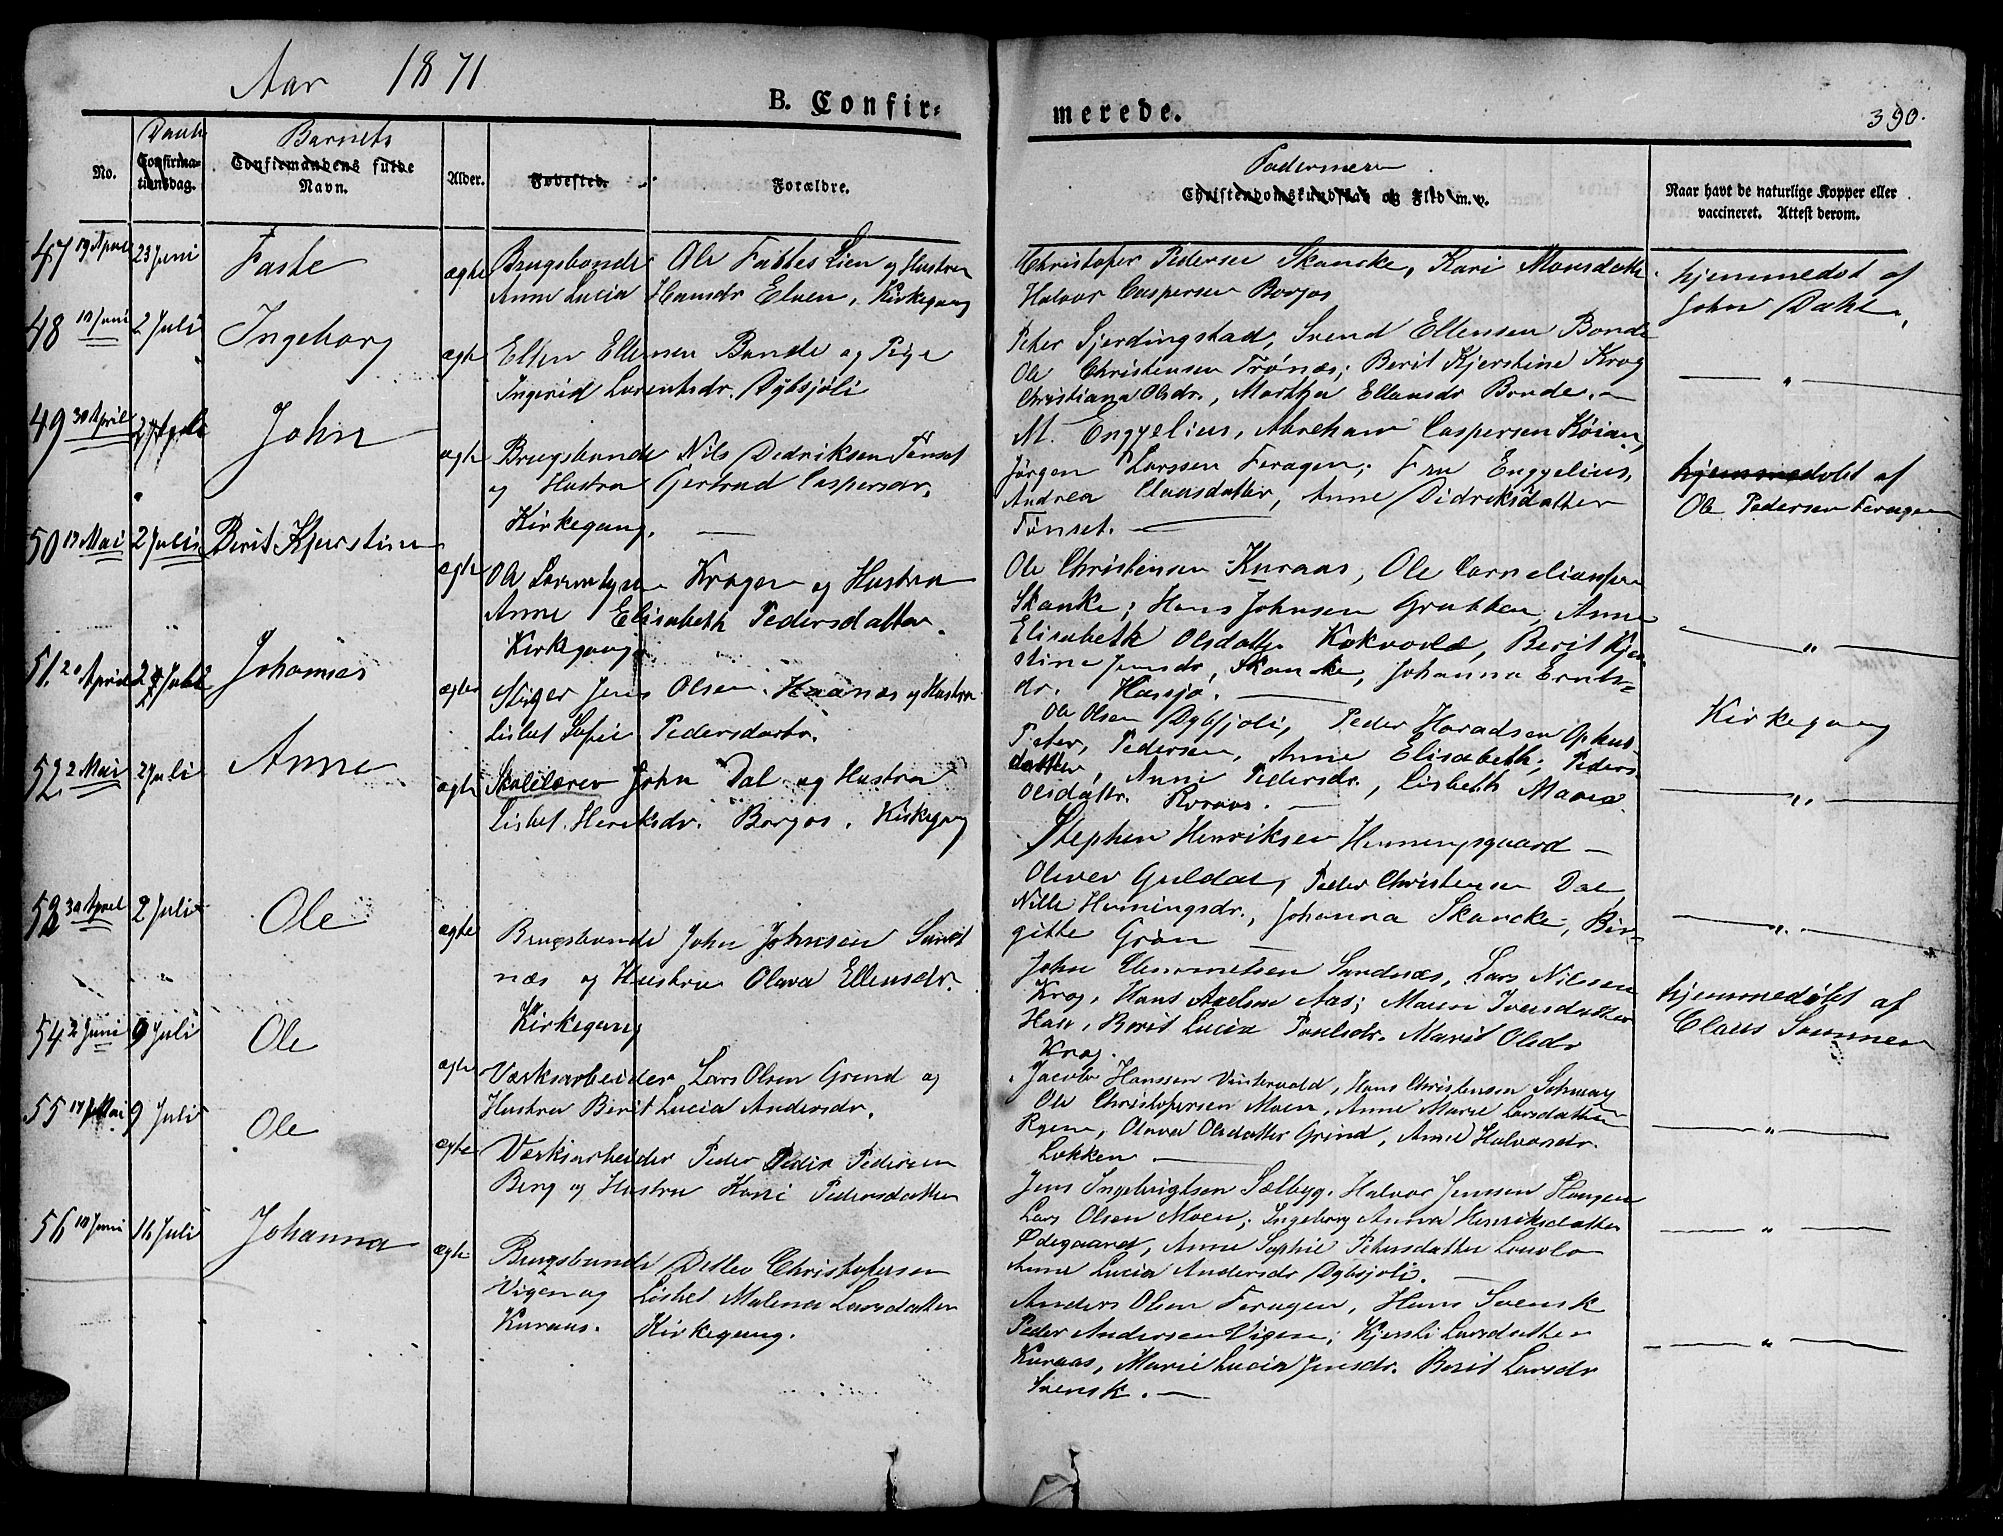 Aar 1871
B. Confir=
merede.
390.
No.
Daab
Confirma-
tionsdag.
Barnets
Confirmandens fulde
Navn.
Alder.
Fødested.
Forældre.
Faderne
Christendomskundskab og Flid m. v.
Naar havt de naturlige Kopper eller
vaccineret. Attest derom.
47 19 April 23 Juni Faste ægte Brugsbonde Ole Fastes Lien og Hustru
Anne Lucia Hansdr Elven, Kirkegang
Christofer Pedersen Skancke, Kari Monsdatter
Halvor Caspersen Borgos
hjemmedøbt af
John Dahl
48 Juni 2 Juli Ingeborg ægte Ellen Ellensen Bonde og Pige
Ingerid Lorentsdr. Dybsjøli
Peter Gjerdingstad, Svend Ellensen Bonde
Ole Christensen Trønæs; Berit Kjerstine Krog
Christiana Olsdr., Marthe Ellensdr Bonde. —
— " —
49 30 April 2 Juli John ægte Brugsbonde Nils Didriksen Tønset
og Hustru Gertrud Caspersdr.
Kirkegang. —
M. Engzelius, Abraham Caspersen Køian,
Jørgen Larssen Feragen; Fru Engzelius,
Andrea Claasdatter, Anne Didriksdatter
Tønset. —
hjemmedøbt af
Ole Pedersen Feragen
50 19 Mai 2 Juli Berit Kjerstine ægte Ole Lorentzsen Krogen og Hustru
Anne Elisabeth Pedersdatter.
Kirkegang
Ole Christensen Kuraas, Ole Corneliussen
Skanke; Hans Johnsen Grubben, Anne
Elisabeth Olsdatter Kokvold, Berit Kjer-
stine Jensdr, Skancke, Johanna Ernts-
dr. Hassjø. —
— " —
51. 20 April 2 Juli Johannes ægte Stiger Jens Olsen Haanæs og Hustru
Lisbet Sofie Pedersdatr.
Ole Olsen Dybsjøli, Peder Haradsen Ophus
Peter Pedersen, Anne Elisabeth Peders-
datter, Anne Pedersdr., Lisbeth Maria
Olsdatr. Kuraas. —
Kirkegang
52. 2 Mai 2 Juli Anne ægte Skolelærer John Dal og Hustru
Lisbet Henriksdr. Borgos. Kirkegang
Stephen Henriksen Henningsgaard —
Oliver Guldal, Peder Christensen Dal
Nille Henningsdr., Johanna Skancke, Bir-
gitte Grøn —
— " —
53 30 April 2 Juli Ole ægte Brugsbonde John Johnsen Sand
næs og Hustru Olava Ellensdr.
Kirkegang
John Clemmetsen Sandnæs, Lars Nilsen
Krog, Hans Axelsen Aas; Maren Iversdatter
Haas, Berit Lucia Poulsdr. Marit Olsdr
Krog.
— " —
hjemmedøbt af
Claus Sommer
54 2 Juni 9 Juli Ole ægte Værksarbeider Lars Olsen Grind og
Hustru Berit Lucia Andersdr.
Jacob Hanssen Vintervold, Hans Christensen Solvaag
Ole Christofersen Moen, Anne Marie Larsdatter
Ryen, Olava Olsdatter Grind, Anne Halvorsdr.
Løkken —
— " —
55 14 Mai 9 Juli Ole ægte Værksarbeider Peder Peder Pedersen
Berg og Hustru Kari Pedersdatter
Jens Ingebrigtsen Sælbyg. Halvor Jenssen Haugen
Lars Olsen Moen; Ingeborg Anna Henriksdatter
Ødegaard, Anne Sophie Petersdatter
Anne Lucia Andersdr Dybsjøli. —
— " —
56 10 Juni 16 Juli Johanna ægte Brugsbonde Detlev Christofersen
Vigen og Lisbet Malena Larsdatter
Kuraas. Kirkegang.
Anders Olsen Feragen, Hans Svensk
Peder Andersen Vigen; Kjersti Larsdatter
Kuraas, Marie Lucia Jensdr. Berit Larsdr
Svensk. —
— " —